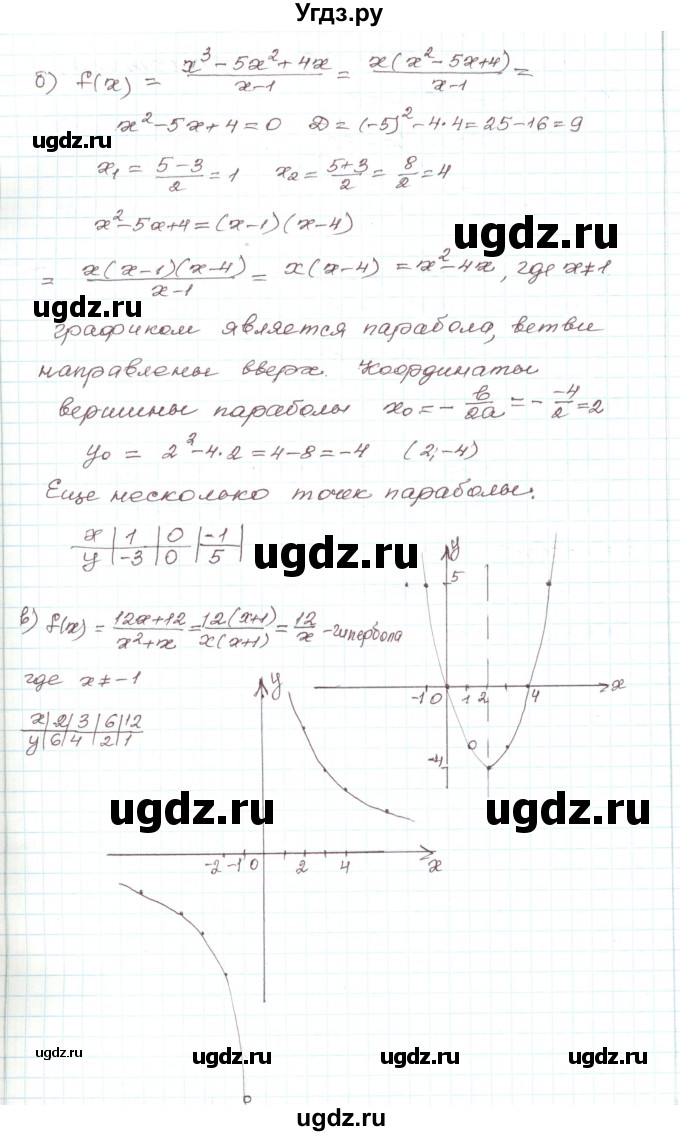 Угдз.ру
б) f(x) = (x³ – 5x² + 4x)/(x–1) = x(x² – 5x+4)/(x–1) =
ugdz.ru
x² – 5x + 4 = 0 D = (–5)² – 4·4 = 25 – 16 = 9
x₁ = (5–3)/2 = 1 x₂ = (5+3)/2 = 8/2 = 4
x² – 5x + 4 = (x–1)(x–4)
ugdz.ru
= x(x–1)(x–4)/(x–1) = x(x–4) = x² – 4x, где x≠1
ugdz.ru
графиком является парабола, ветви
направлены вверх. Координаты
вершины параболы x₀ = – в/2а = – –4/2 = 2
y₀ = 2² – 4·2 = 4 – 8 = –4 (2; –4)
Еще несколько точек параболы:
x | 1 | 0 | –1
y | –3 | 0 | 5
ugdz.ru
y
5
–1 0 1 2 4 x
–4
в) f(x) = (12x+12)/(x²+x) = 12(x+1)/(x(x+1)) = 12/x – гипербола
где x ≠ –1
x | 2 | 3 | 6 | 12
y | 6 | 4 | 2 | 1
y
ugdz.ru
ugdz.ru
–2 –1 0 2 4 x
ugdz.ru
ugdz.ru
ugdz.ru
ugdz.ru
ugdz.ru
ugdz.ru